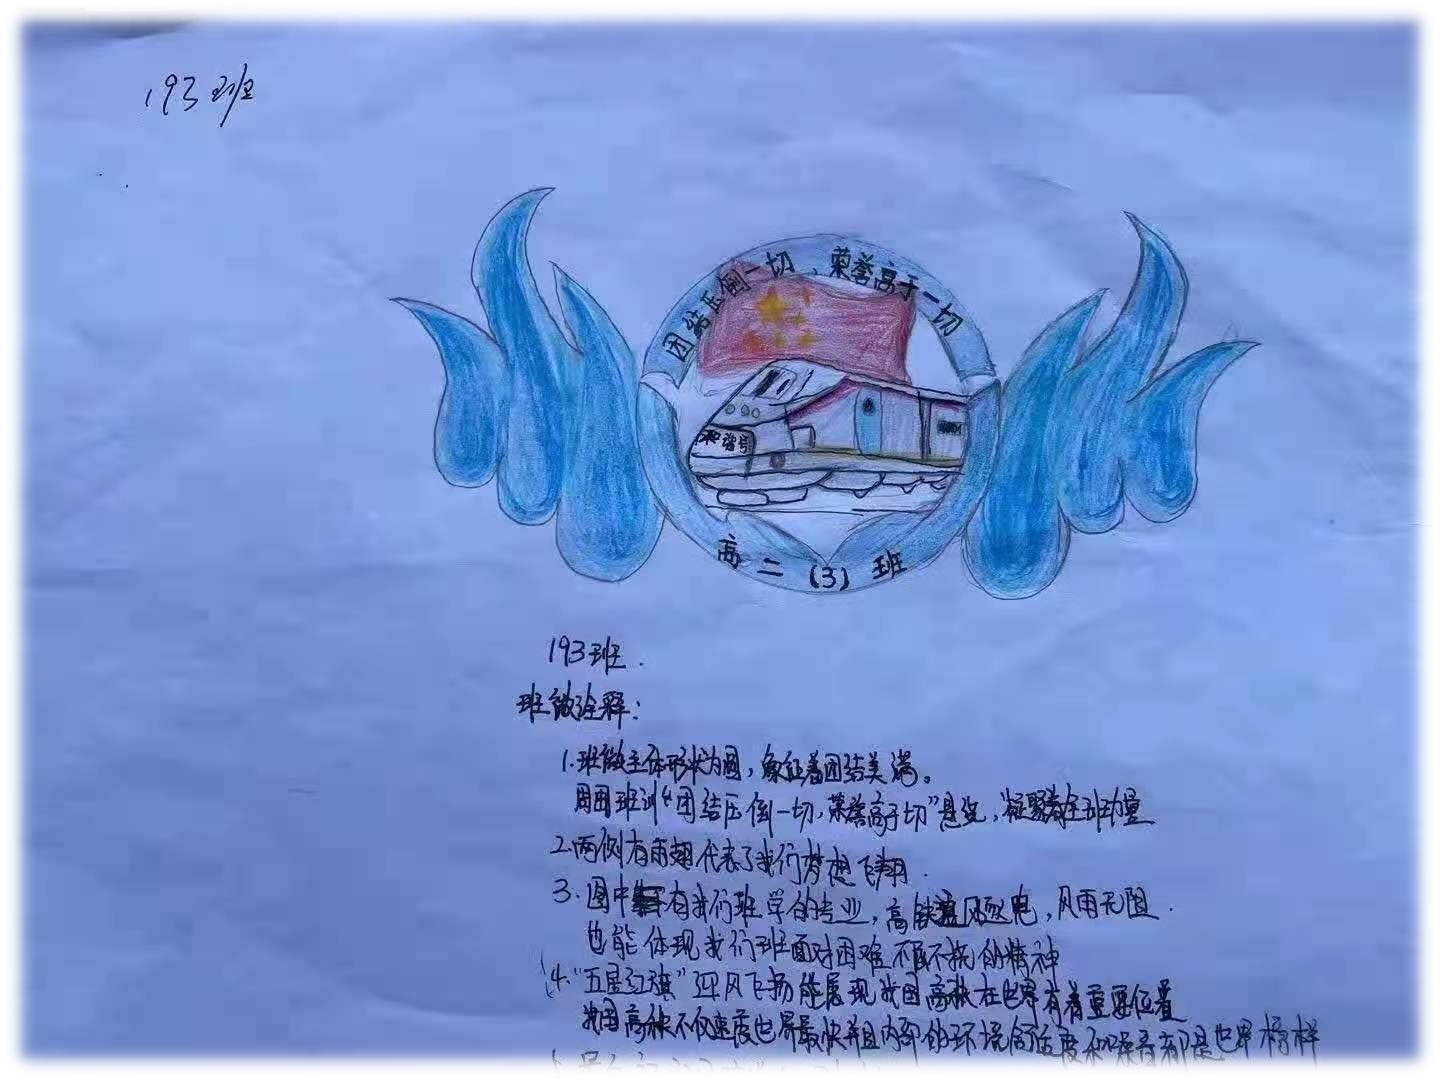 193班
团结压倒一切、荣誉高于一切
和谐号
高二(3)班
193班.
班徽诠释:
1.班徽主体形状为圆,象征着团结美满。
周围班训“团结压倒一切,荣誉高于切”是说,凝聚着全班力量
2.两侧有雨翅代表了我们梦想飞翔.
3.图中有我们班学的专业,高铁追风逐电,风雨无阻.
也能体现我们班面对困难不屈不挠的精神
4.“五星红旗”迎风飞扬能展现我国高铁在世界有着重要位置
我国高铁不仅速度世界最快并且内部的环境舒适度和噪音都是世界榜样